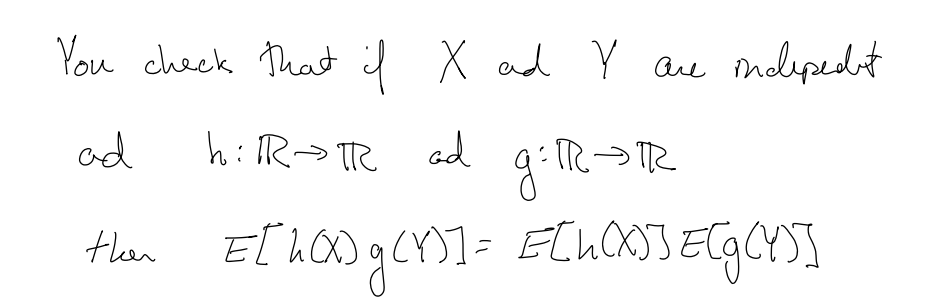 You check that if X ad Y are indepedt
ad h: ℝ→ℝ ad g: ℝ→ℝ
then E[h(X)g(Y)] = E[h(X)]E[g(Y)]